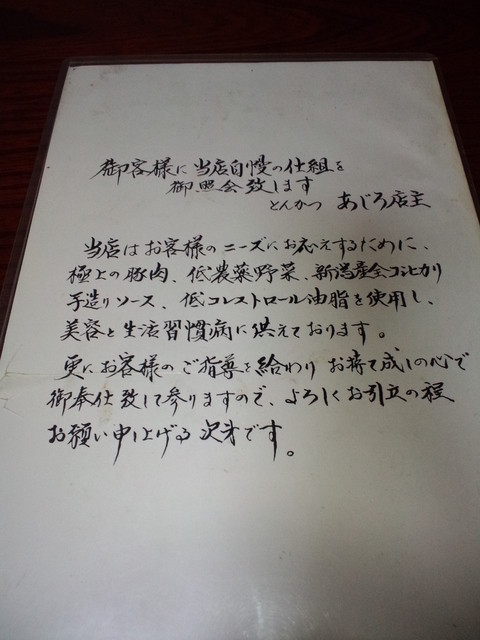 御客様に当店自慢の仕組を
御照会致します
とんかつ あじろ店主
当店はお客様のニーズにお応えするために、
極上の豚肉、低農薬野菜、新潟産全コシヒカリ
手造りソース、低コレストロール油脂を使用し、
美容と生活習慣病に供えております。
更にお客様のご指導を給わりお持て成しの心で
御奉仕致して参りますので、よろしくお引立の程
お願い申上げる次才です。